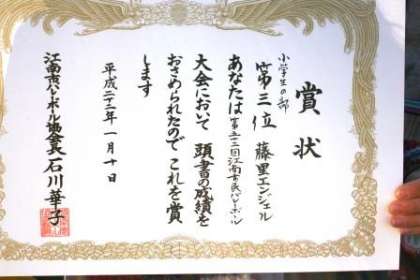 賞状
小学生の部
第三位 藤里エンジェル
あなたは第五十二回江南市民バレーボール
大会において 頭書の成績を
おさめられたので これを賞
します
平成二十二年一月十日
江南市バレーボール協会長 石川華子